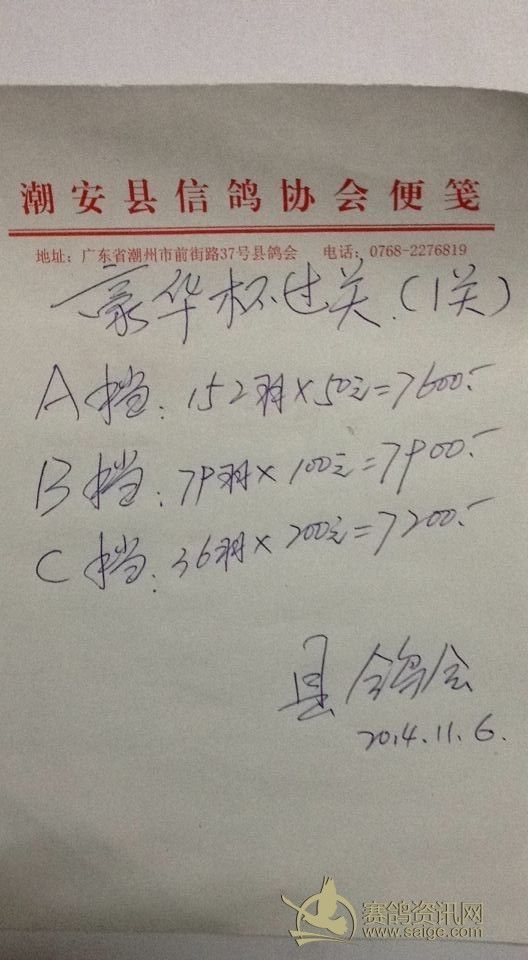 潮安县信鸽协会便笺
地址：广东省潮州市前街路37号县鸽会 电话：0768-2276819
豪华杯过关.(1关)
A档：152羽×50元=7600.-
B档：79羽×100元=7900.-
C档：36羽×200元=7200.-
县鸽会
2014.11.6.
赛鸽资讯网
www.saige.com